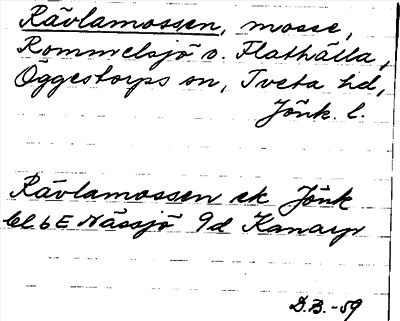 Rävlamossen, mosse,
Rommelsjö o. Flathälla,
Öggestorps sn, Tveta hd,
Jönk. l.
Rävlamossen ek Jönk
bl 6E Nässjö 9d Kanarp
D.B.-59